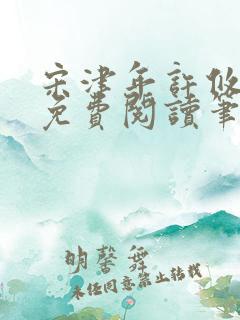 宋津年許悠
免費閱讀筆
明馨舞
未經同意禁止转载